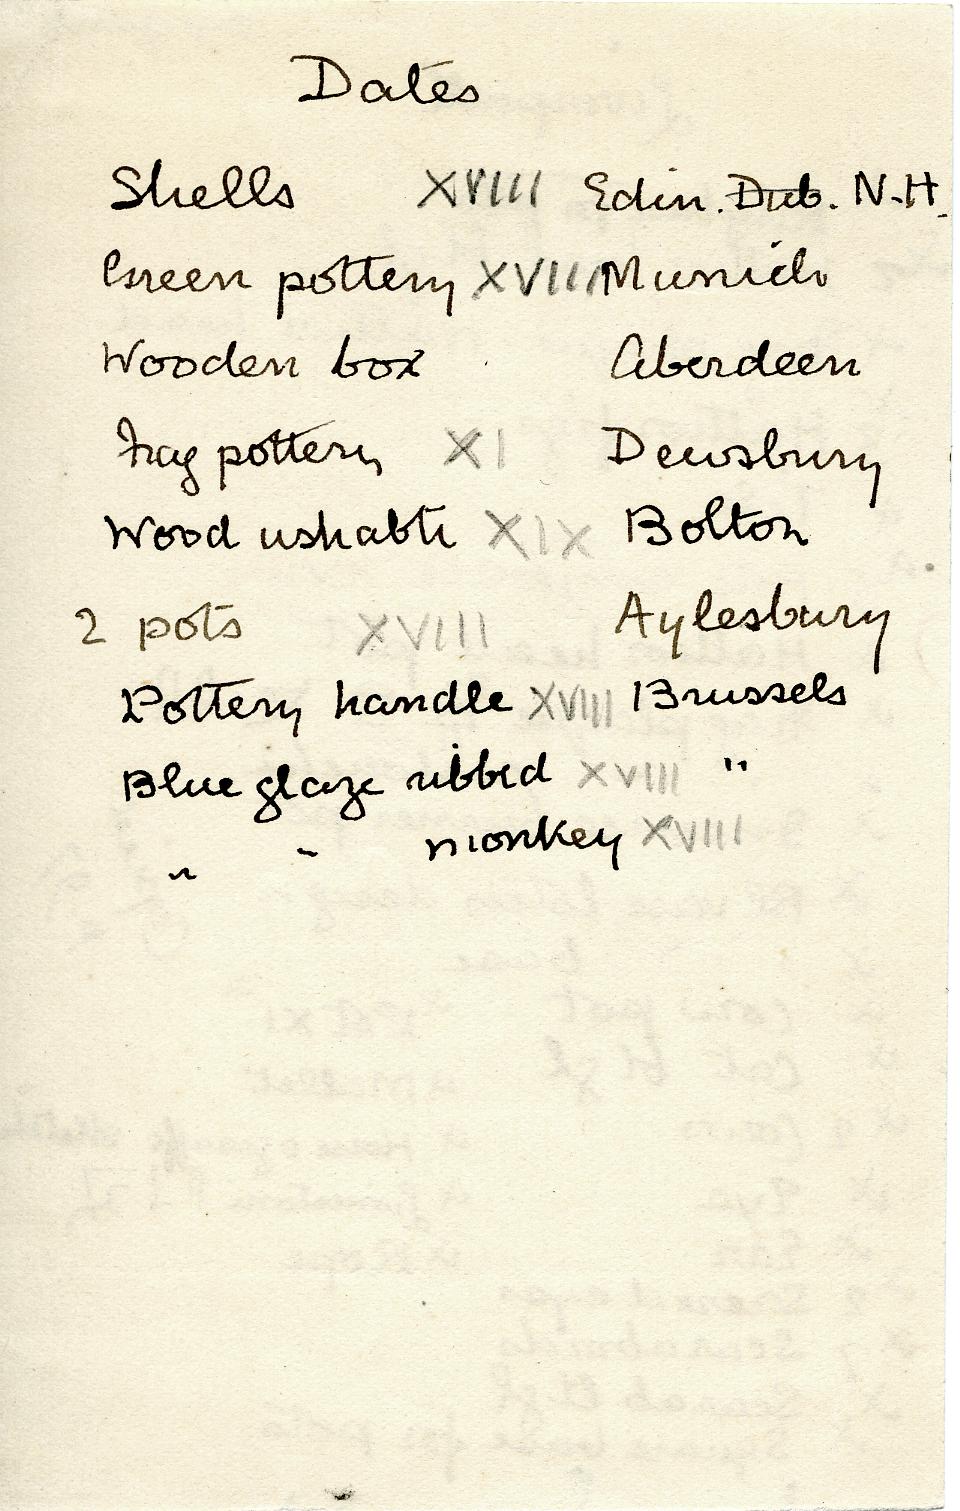 Dates
Shells XVIII Edin. Dub. N-H.
Green pottery XVIII Munich
Wooden box Aberdeen
Frag pottery XI Dewsbury
Wood ushabti XIX Bolton
2 pots XVIII Aylesbury
Pottery handle XVIII Brussels
Blue glaze ribbed XVIII "
" " monkey XVIII